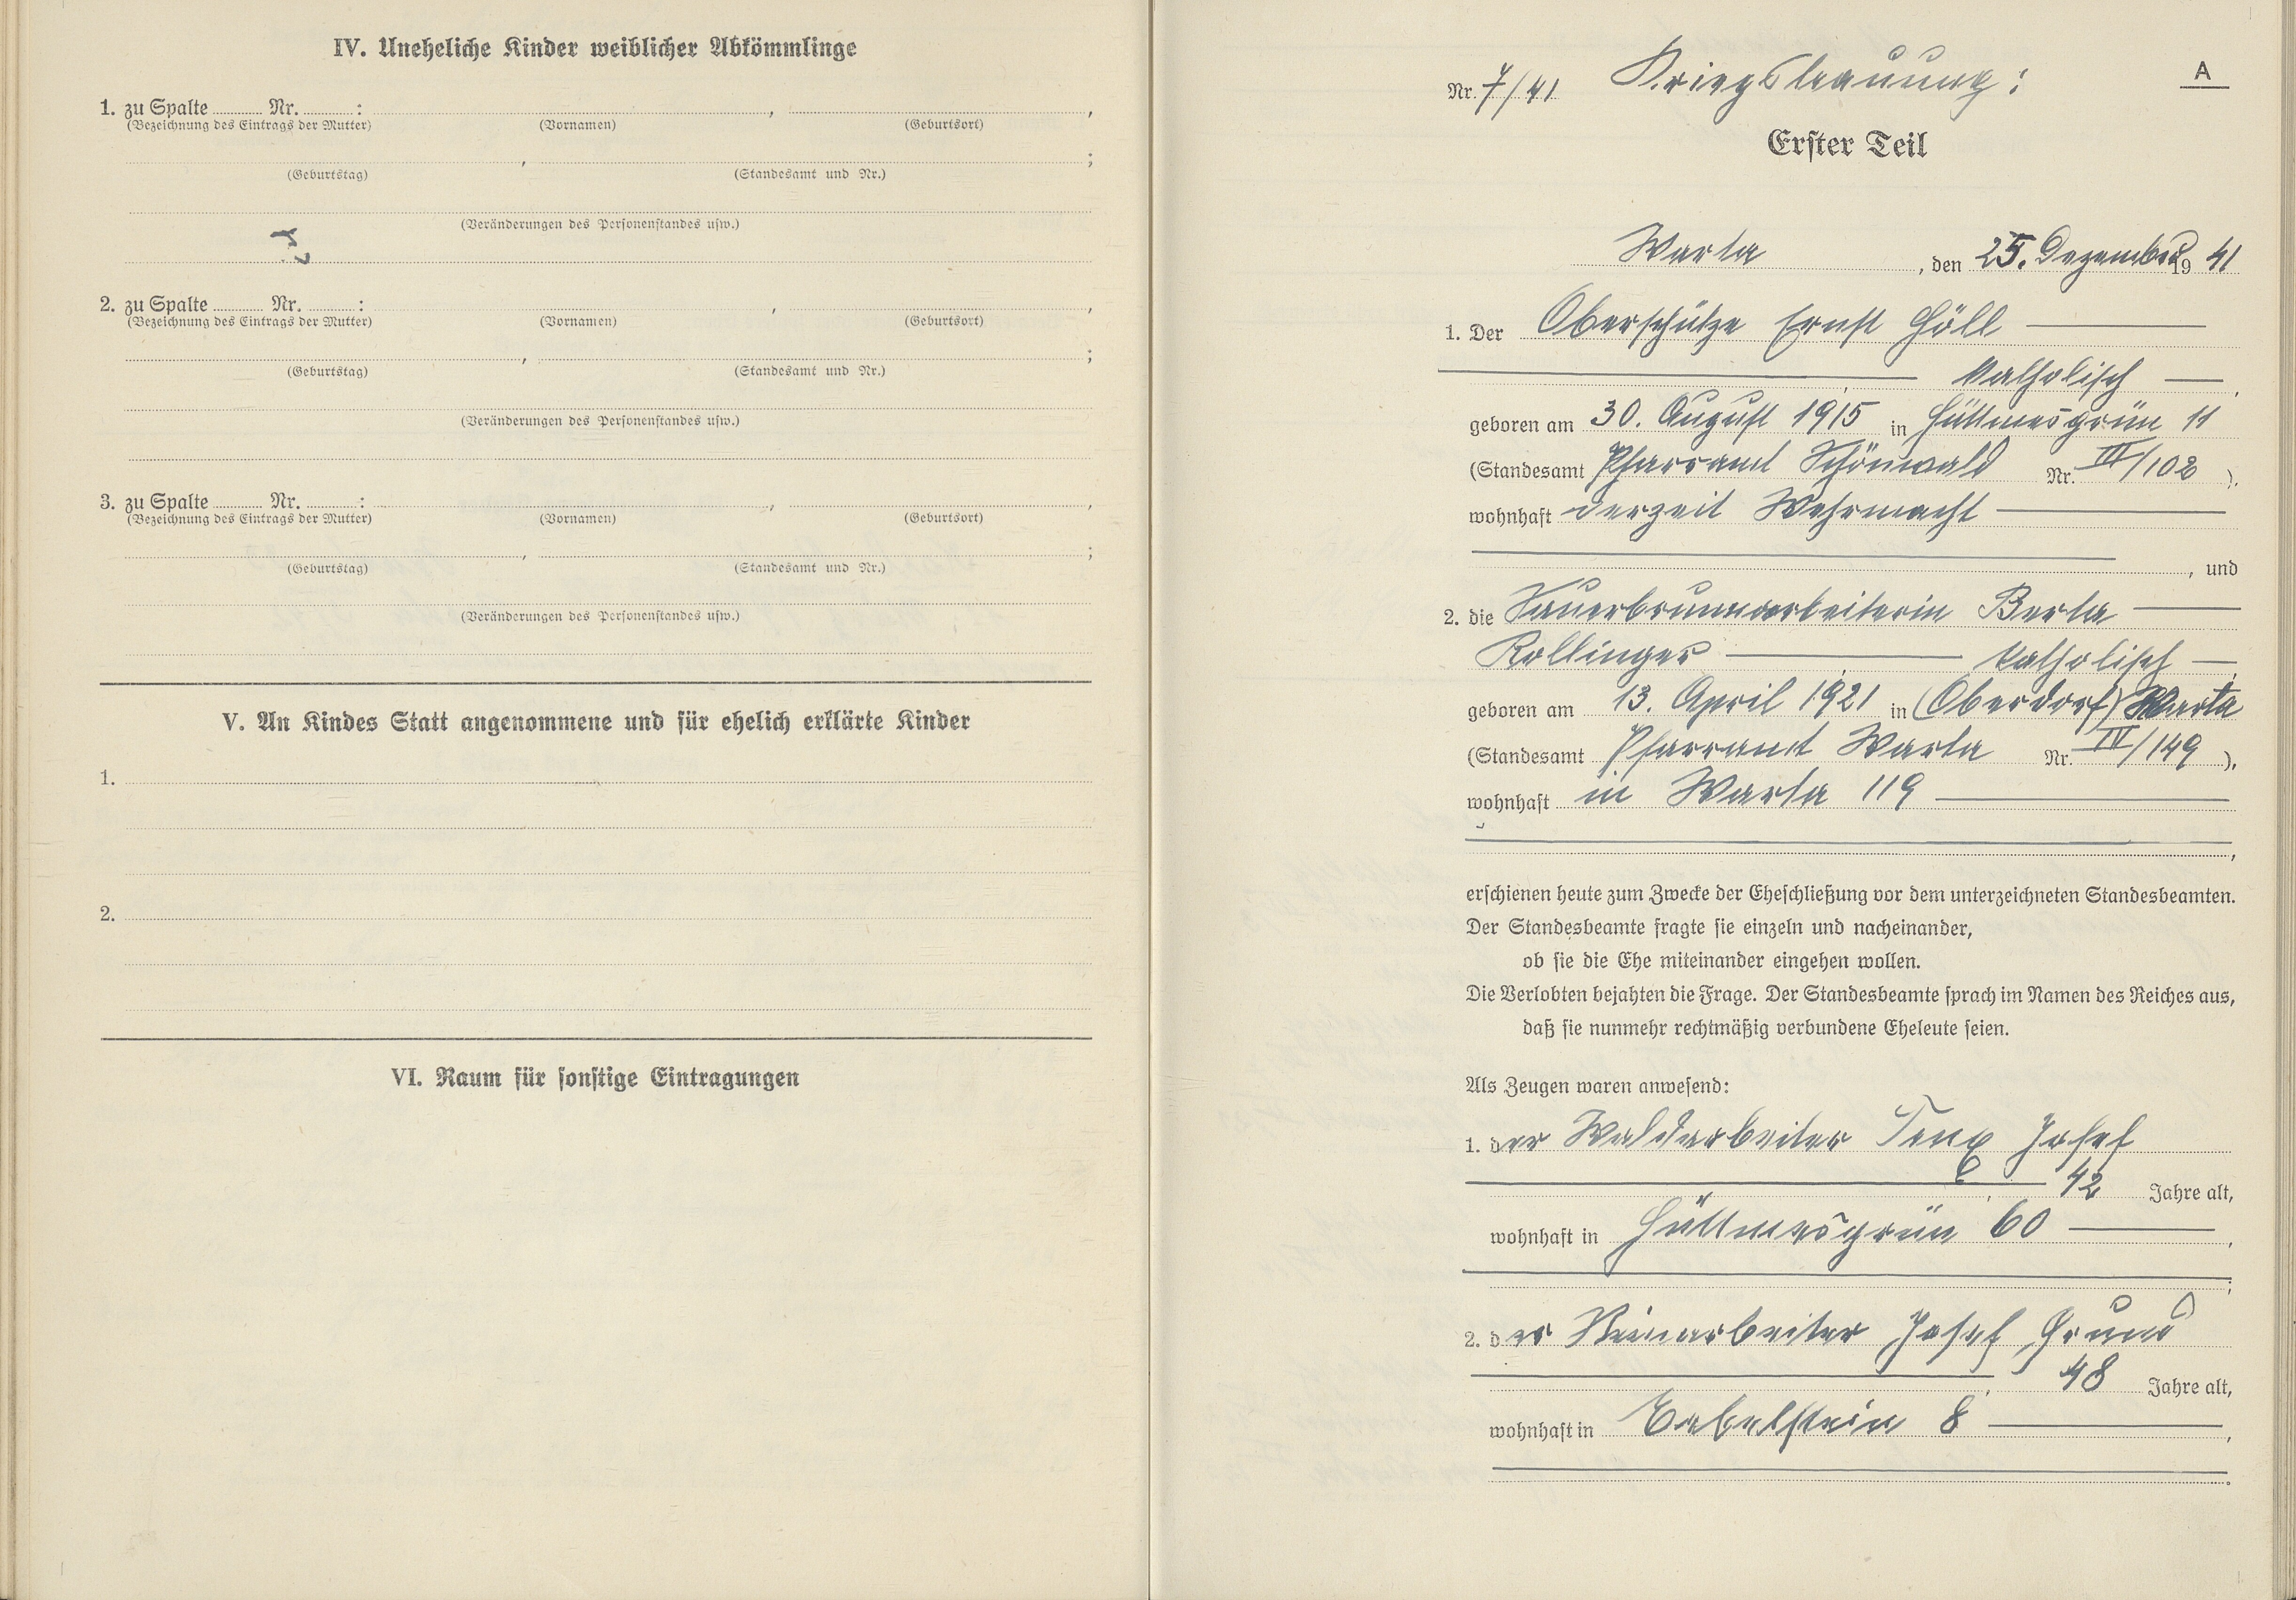 IV. Uneheliche Kinder weiblicher Abkömmlinge
1. zu Spalte ........ Nr. ........ :
(Bezeichnung des Eintrags der Mutter) (Vornamen) (Geburtsort)
(Geburtstag) (Standesamt und Nr.)
(Veränderungen des Personenstandes usw.)
2. zu Spalte ........ Nr. ........ :
(Bezeichnung des Eintrags der Mutter) (Vornamen) (Geburtsort)
(Geburtstag) (Standesamt und Nr.)
(Veränderungen des Personenstandes usw.)
3. zu Spalte ........ Nr. ........ :
(Bezeichnung des Eintrags der Mutter) (Vornamen) (Geburtsort)
(Geburtstag) (Standesamt und Nr.)
(Veränderungen des Personenstandes usw.)
V. An Kindes Statt angenommene und für ehelich erklärte Kinder
1.
2.
VI. Raum für sonstige Eintragungen
A
Nr. 7/41 Kriegstrauung:
Erster Teil
Warta, den 25. Dezember 1941
1. Der Oberschütze Ernst Höll
katholisch,
geboren am 30. August 1915 in Hüttmesgrün 11
(Standesamt Pfarramt Schönwald Nr. III/102),
wohnhaft derzeit Wehrmacht
, und
2. die Sauerbrunnarbeiterin Berta
Rollinger katholisch,
geboren am 13. April 1921 in (Oberdorf) Warta
(Standesamt Pfarramt Warta Nr. IV/149),
wohnhaft in Warta 119
,
erschienen heute zum Zwecke der Eheschließung vor dem unterzeichneten Standesbeamten.
Der Standesbeamte fragte sie einzeln und nacheinander,
ob sie die Ehe miteinander eingehen wollen.
Die Verlobten bejahten die Frage. Der Standesbeamte sprach im Namen des Reiches aus,
daß sie nunmehr rechtmäßig verbundene Eheleute seien.
Als Zeugen waren anwesend:
1. der Waldarbeiter Josef
42 Jahre alt,
wohnhaft in Hüttmesgrün 60,
;
2. der Josef Grund
48 Jahre alt,
wohnhaft in 8,
.